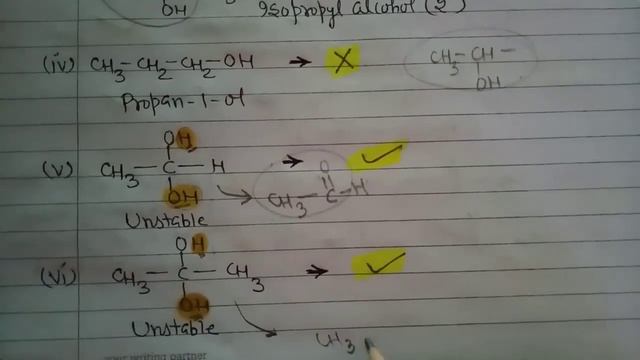 Isopropyl alcohol (2°)
OH
(iv) CH3-CH2-CH2-OH → X CH3-CH-
OH
Propan-1-ol
OH
(v) CH3-C-H → ✓ O
OH CH3-C-H
Unstable
OH
(vi) CH3-C-CH3 → ✓
OH
Unstable CH3
your writing partner